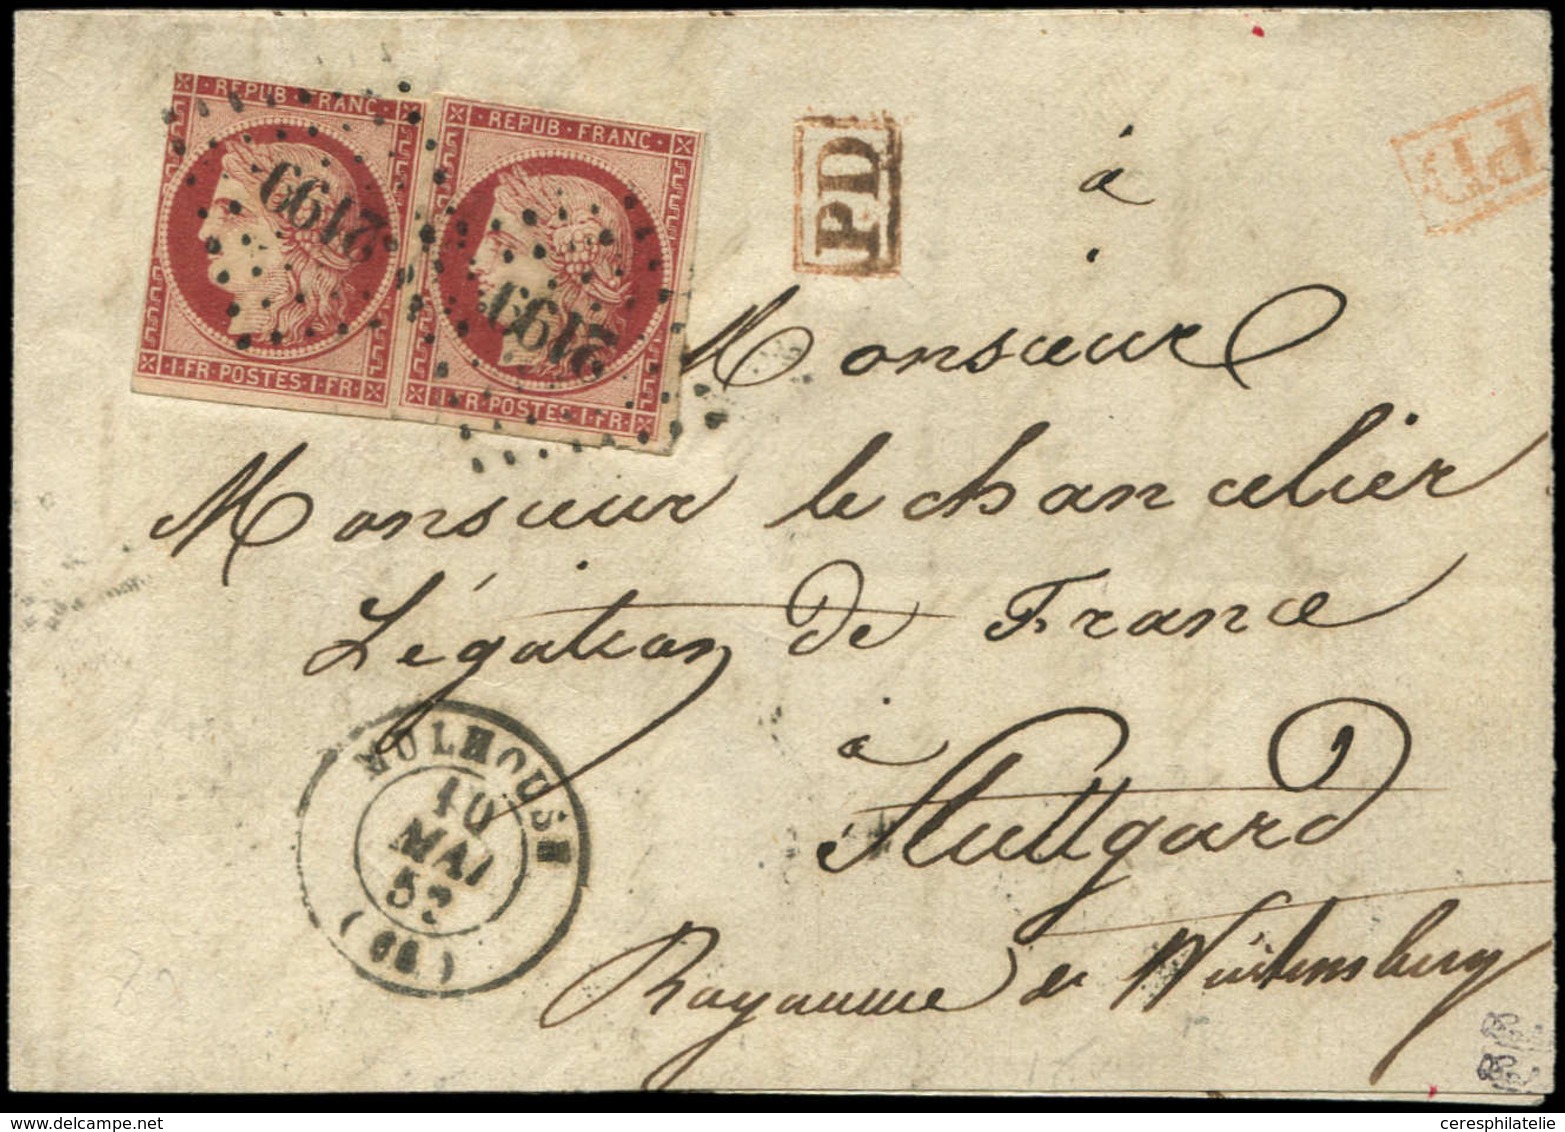 REPUB · FRANC ·
· REPUB · FRANC ·
2199
2199
· 1 · FR · POSTES · 1 · FR ·
· 1 · FR · POSTES · 1 · FR ·
PD
PD
à
Monsieur
Monsieur le chancelier
Légation de France
à
Stuttgard
Royaume de Würtemberg
MULHOUSE
10
MAI
52
(66)
ceresphilatelie